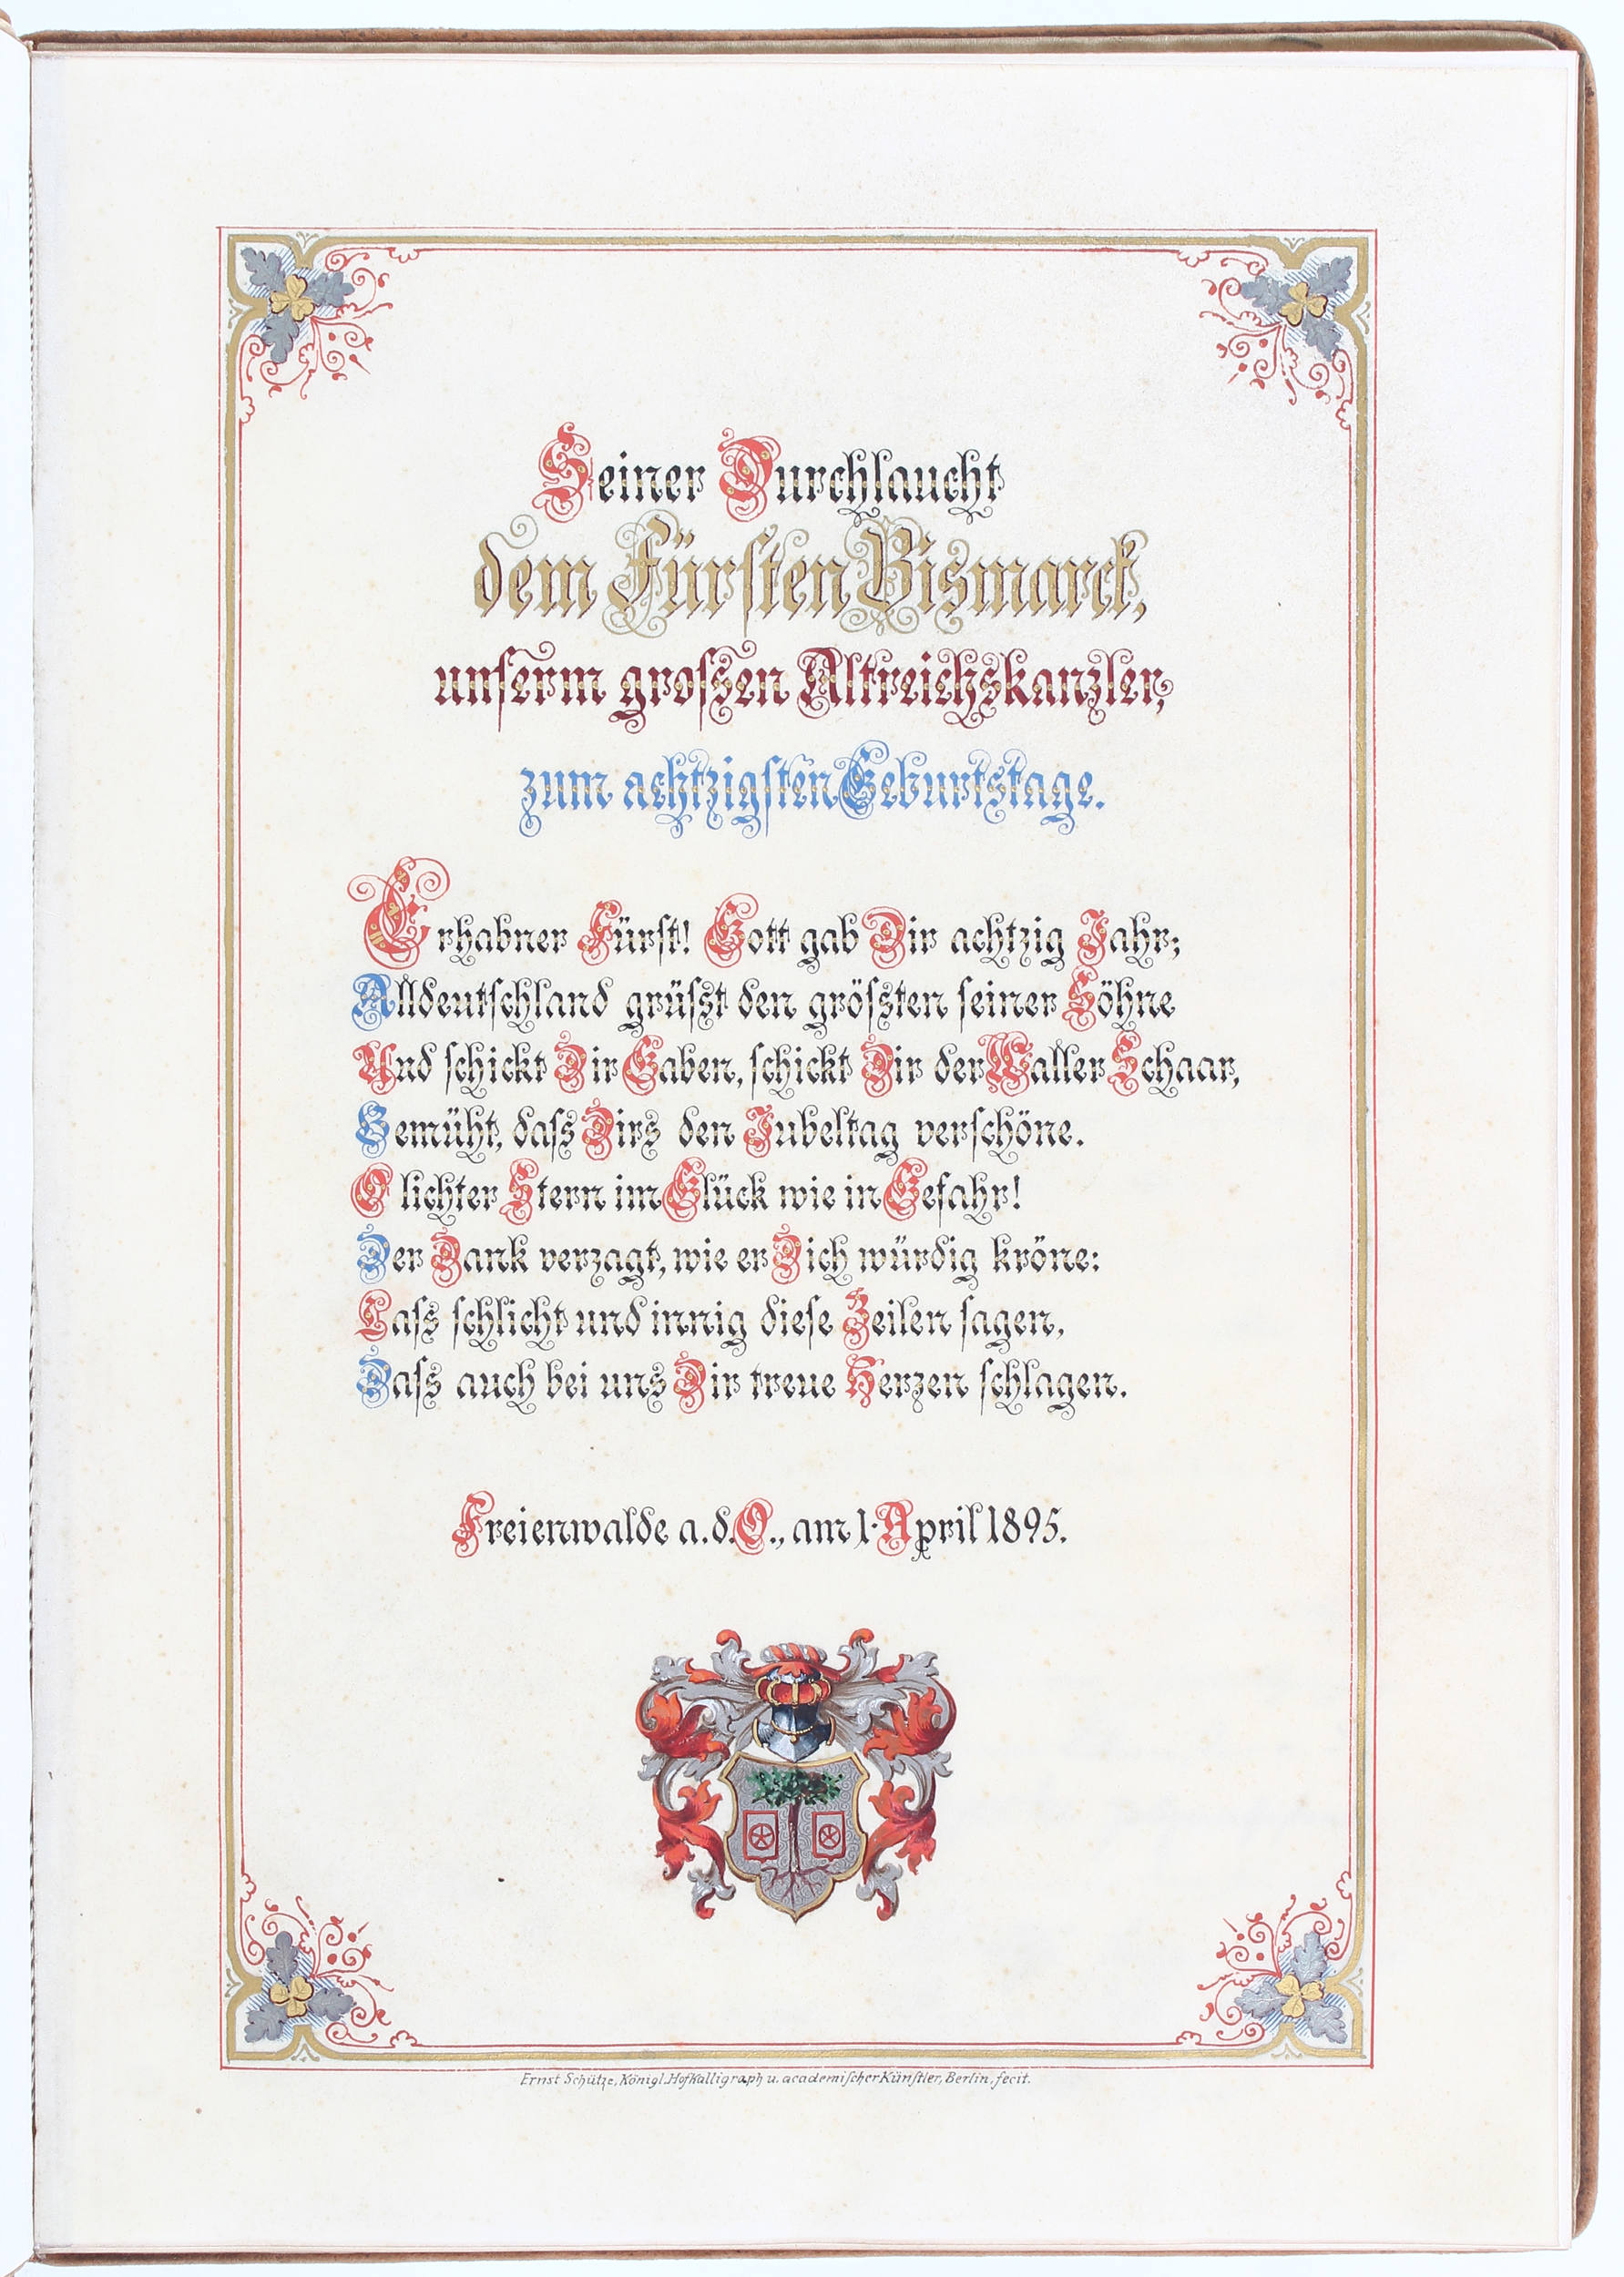 Seiner Durchlaucht
dem Fürsten Bismarck,
unserm grossen Altreichskanzler,
zum achtzigsten Geburtstage.
Erhabner Fürst! Gott gab Dir achtzig Jahr;
Alldeutschland grüsst den grössten seiner Söhne
Und schickt Dir Gaben, schickt Dir der Waller Schaar,
Bemüht, dass Dirs den Jubeltag verschöne.
O lichter Stern im Glück wie in Gefahr!
Der Dank verzagt, wie er Dich würdig kröne:
Lass schlicht und innig diese Zeilen sagen,
Dass auch bei uns Dir treue Herzen schlagen.
Freienwalde a.d.O., am 1. April 1895.
Ernst Schütze, Königl. Hofkalligraph u. academischer Künstler, Berlin, fecit.